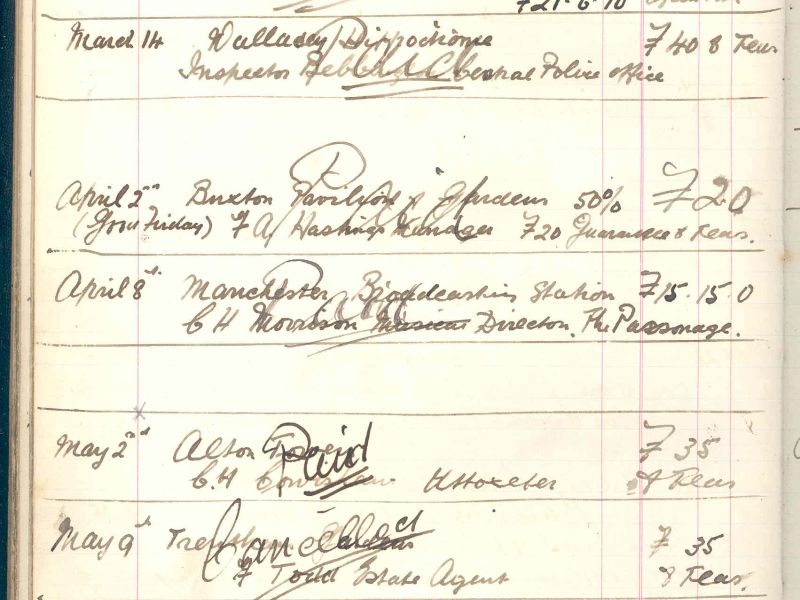 £21-6-10
March 14 Wallasey Hippodrome £40 & Teas
Inspector Central Police Office
Paid
April 2nd Buxton Pavilion & Gardens 50% £20
(Good Friday) F A Hastings Manager £20 Guarantee & Teas.
Paid
April 8th Manchester Broadcasting Station £15.15.0
C H Morrison Musical Director, The Parsonage.
Paid
x
May 2nd Alton Towers £35
Paid
C.H. Uttoxeter & Teas
May 9th Gardens £35
Cancelled
F Todd Estate Agent & Teas